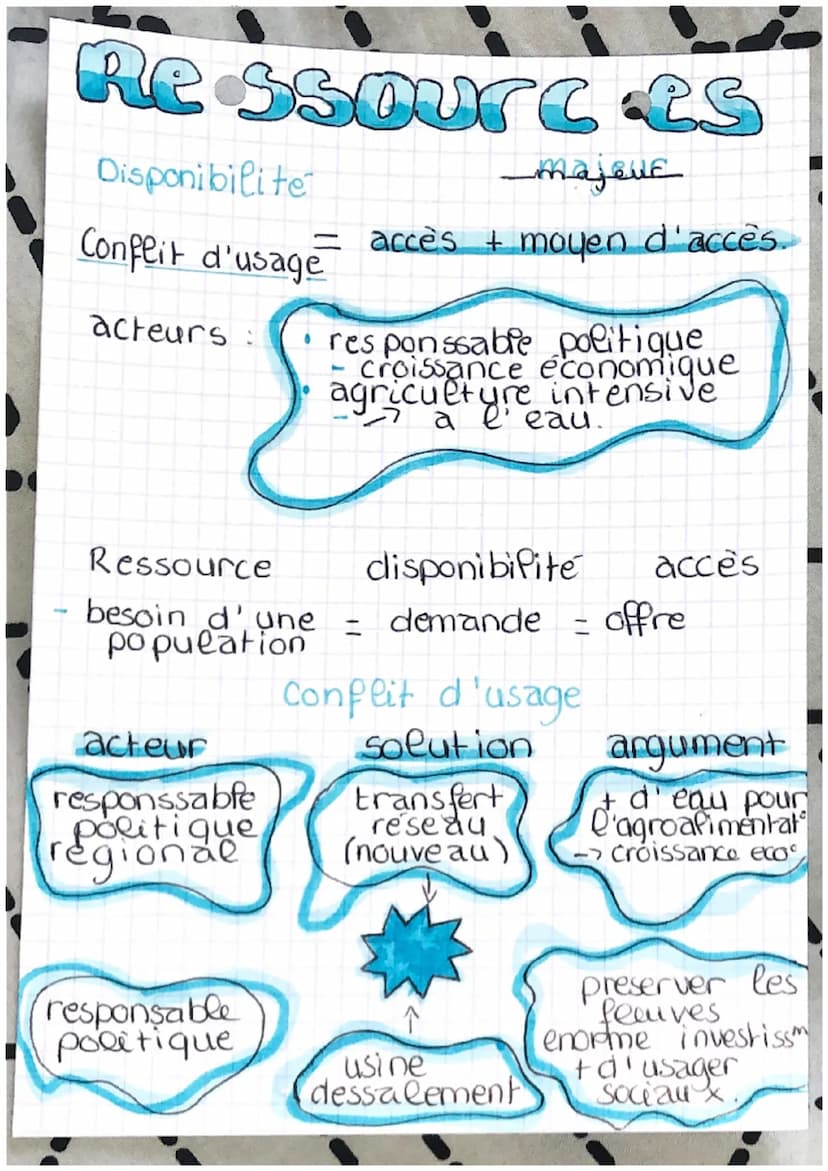 Ressources
Disponibilité majeur
Conflit d'usage = accès + moyen d'accès.
acteurs :
• responssable politique
- croissance économique
• agriculture intensive
- -> a l'eau.
Ressource disponibilité accès
- besoin d'une = demande = offre
population
Conflit d'usage
acteur solution argument
responssable
politique
régional
transfert
réseau
(nouveau)
+ d'eau pour
l'agroalimentat°
-> croissance eco°
responsable
politique
usine
dessalement
preserver les
fleuves
enorme investissm
+ d'usager
sociaux.